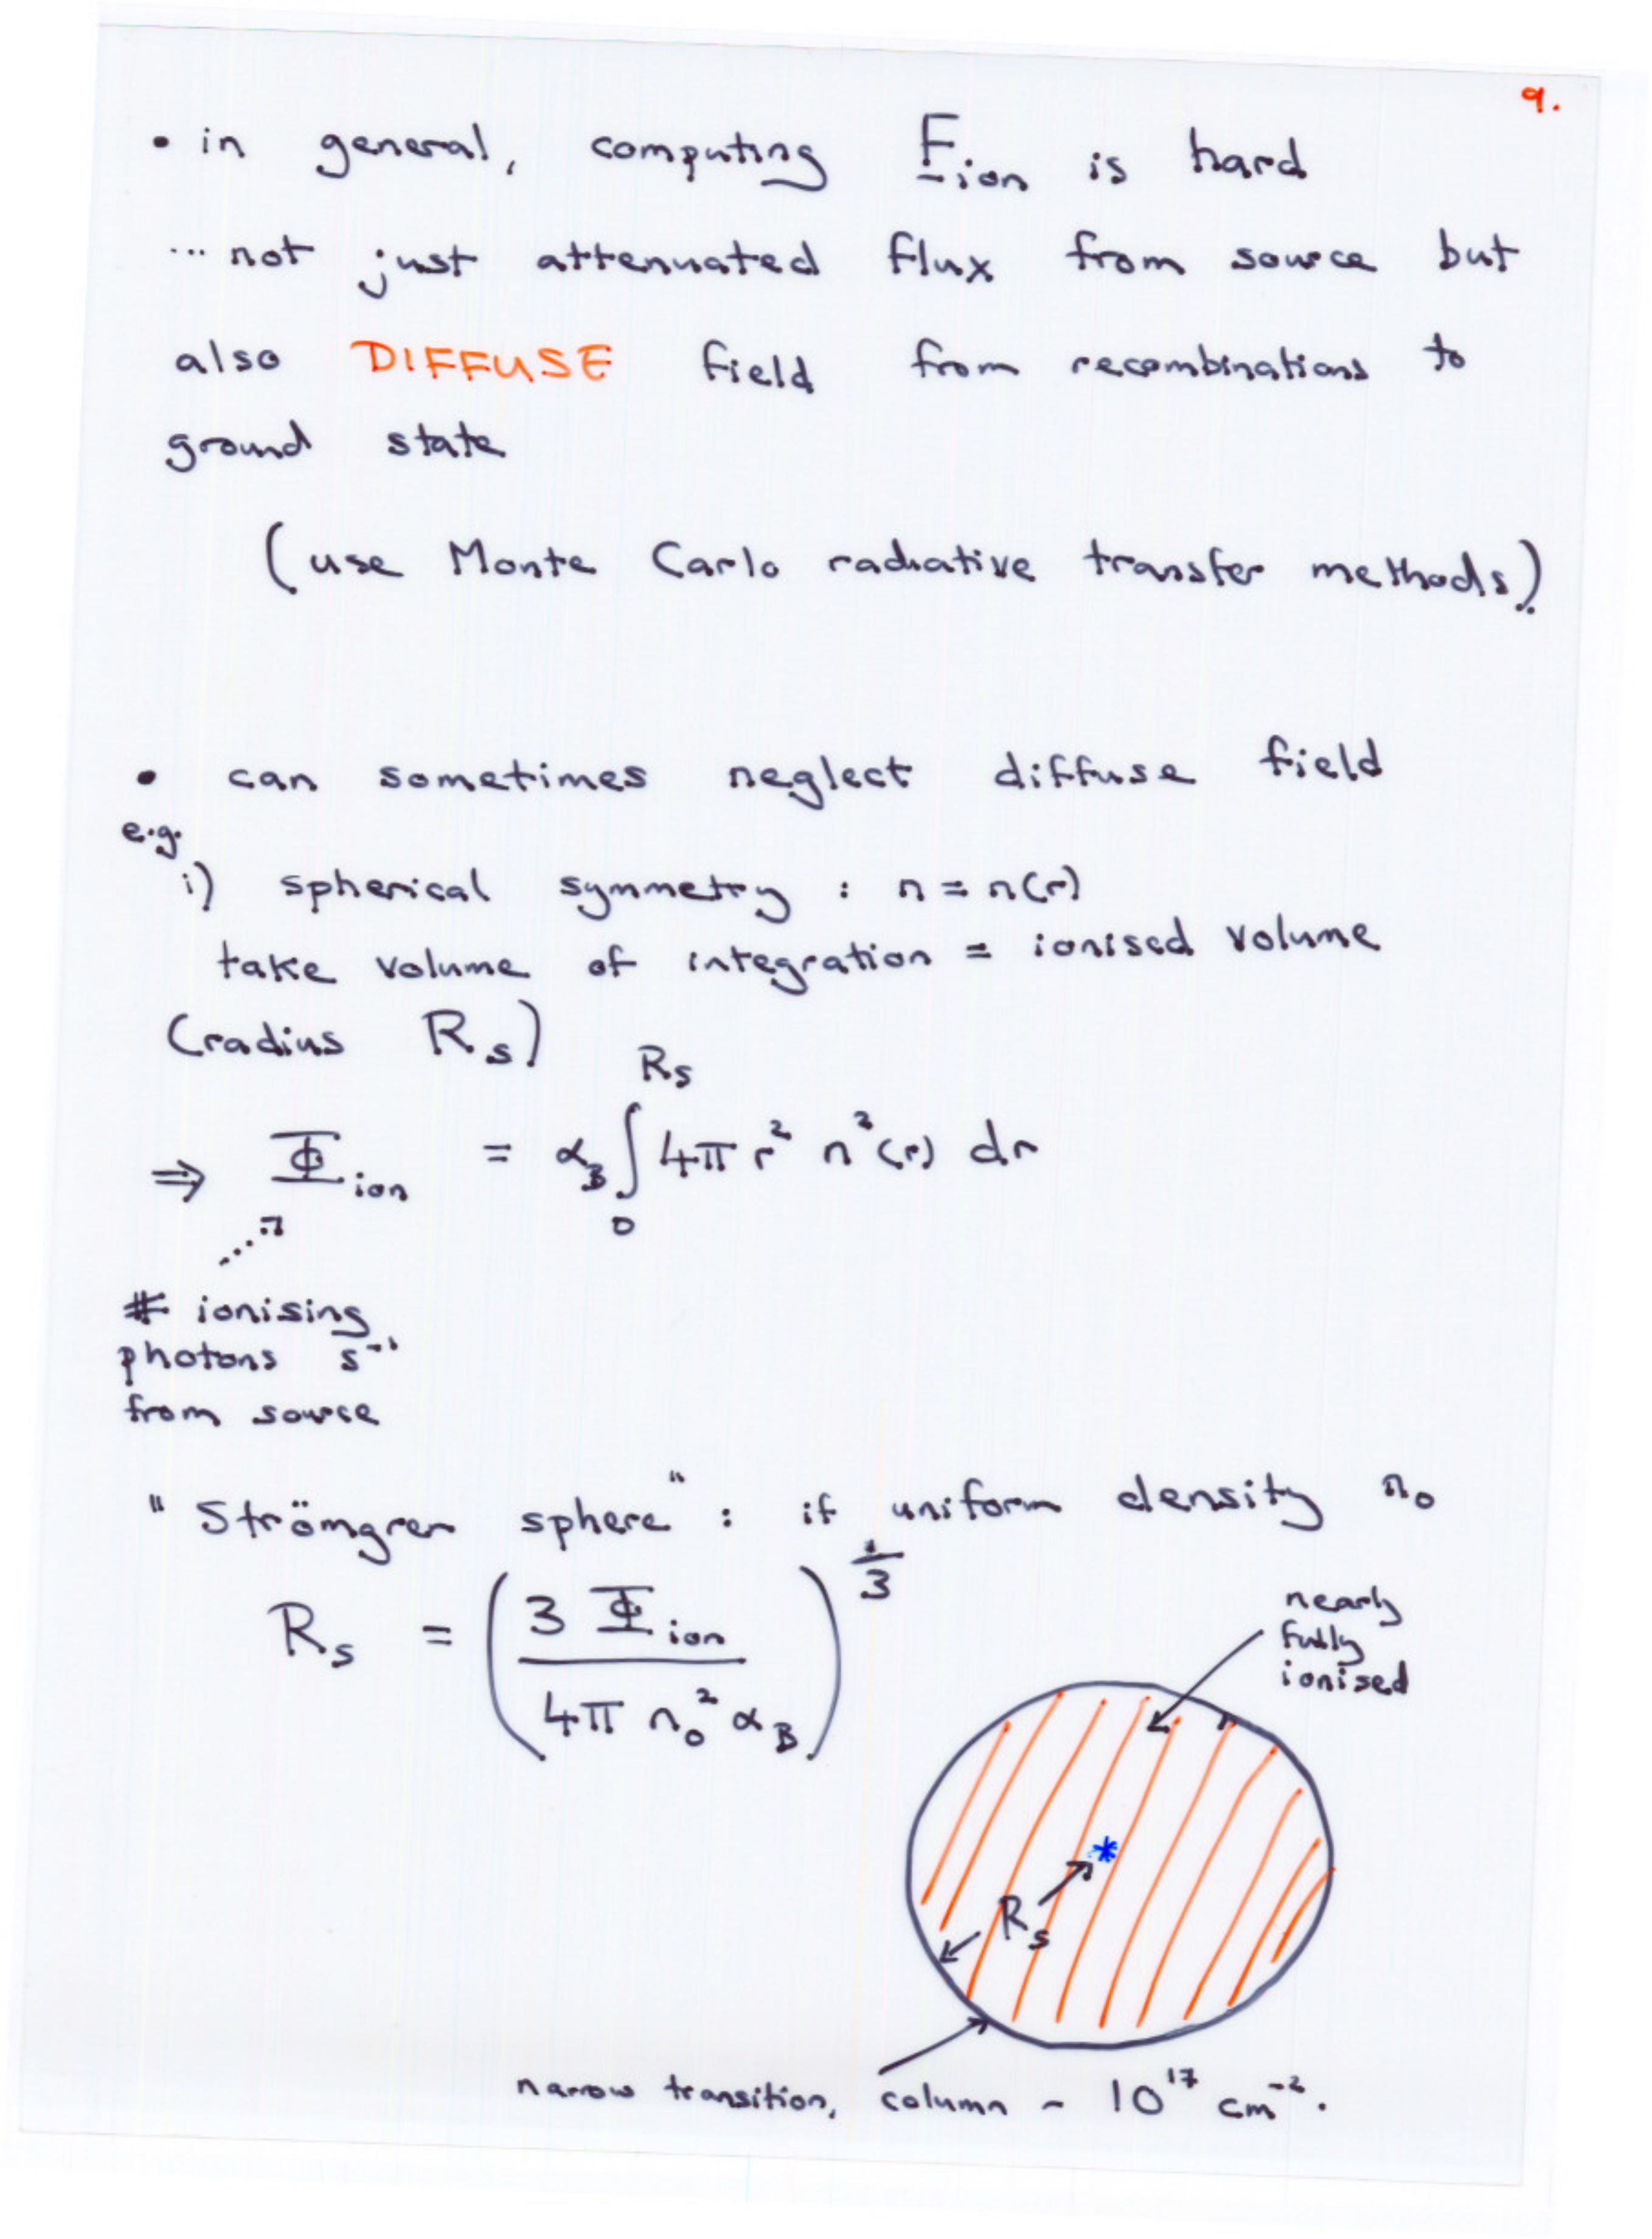 9.
• in general, computing F_ion is hard
... not just attenuated flux from source but
also DIFFUSE field from recombinations to
ground state
(use Monte Carlo radiative transfer methods).
• can sometimes neglect diffuse field
e.g.
i) spherical symmetry : n = n(r)
take volume of integration = ionised volume
(radius R_s)
⇒ Φ_ion = α_B ∫_0^{R_s} 4π r² n²(r) dr
# ionising
photons s⁻¹
from source
"Strömgren sphere" : if uniform density n₀
R_s = (3 Φ_ion / 4π n₀² α_B)^{1/3}
nearly
fully
ionised
*
R_s
narrow transition, column ~ 10¹⁷ cm⁻².